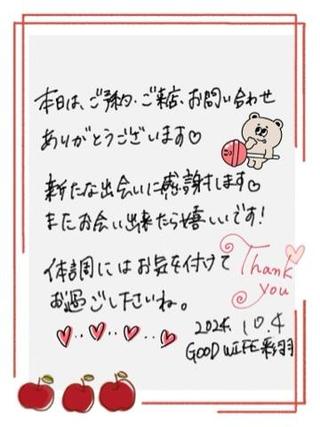 本日は、ご予約・ご来店、お問い合わせ
ありがとうございます♡
新たな出会いに感謝します♡
またお会い出来たら嬉しいです!
体調にはお気を付けて
お過ごしくださいね。
Thank
you
2024. 10. 4
GOOD WIFE 彩羽